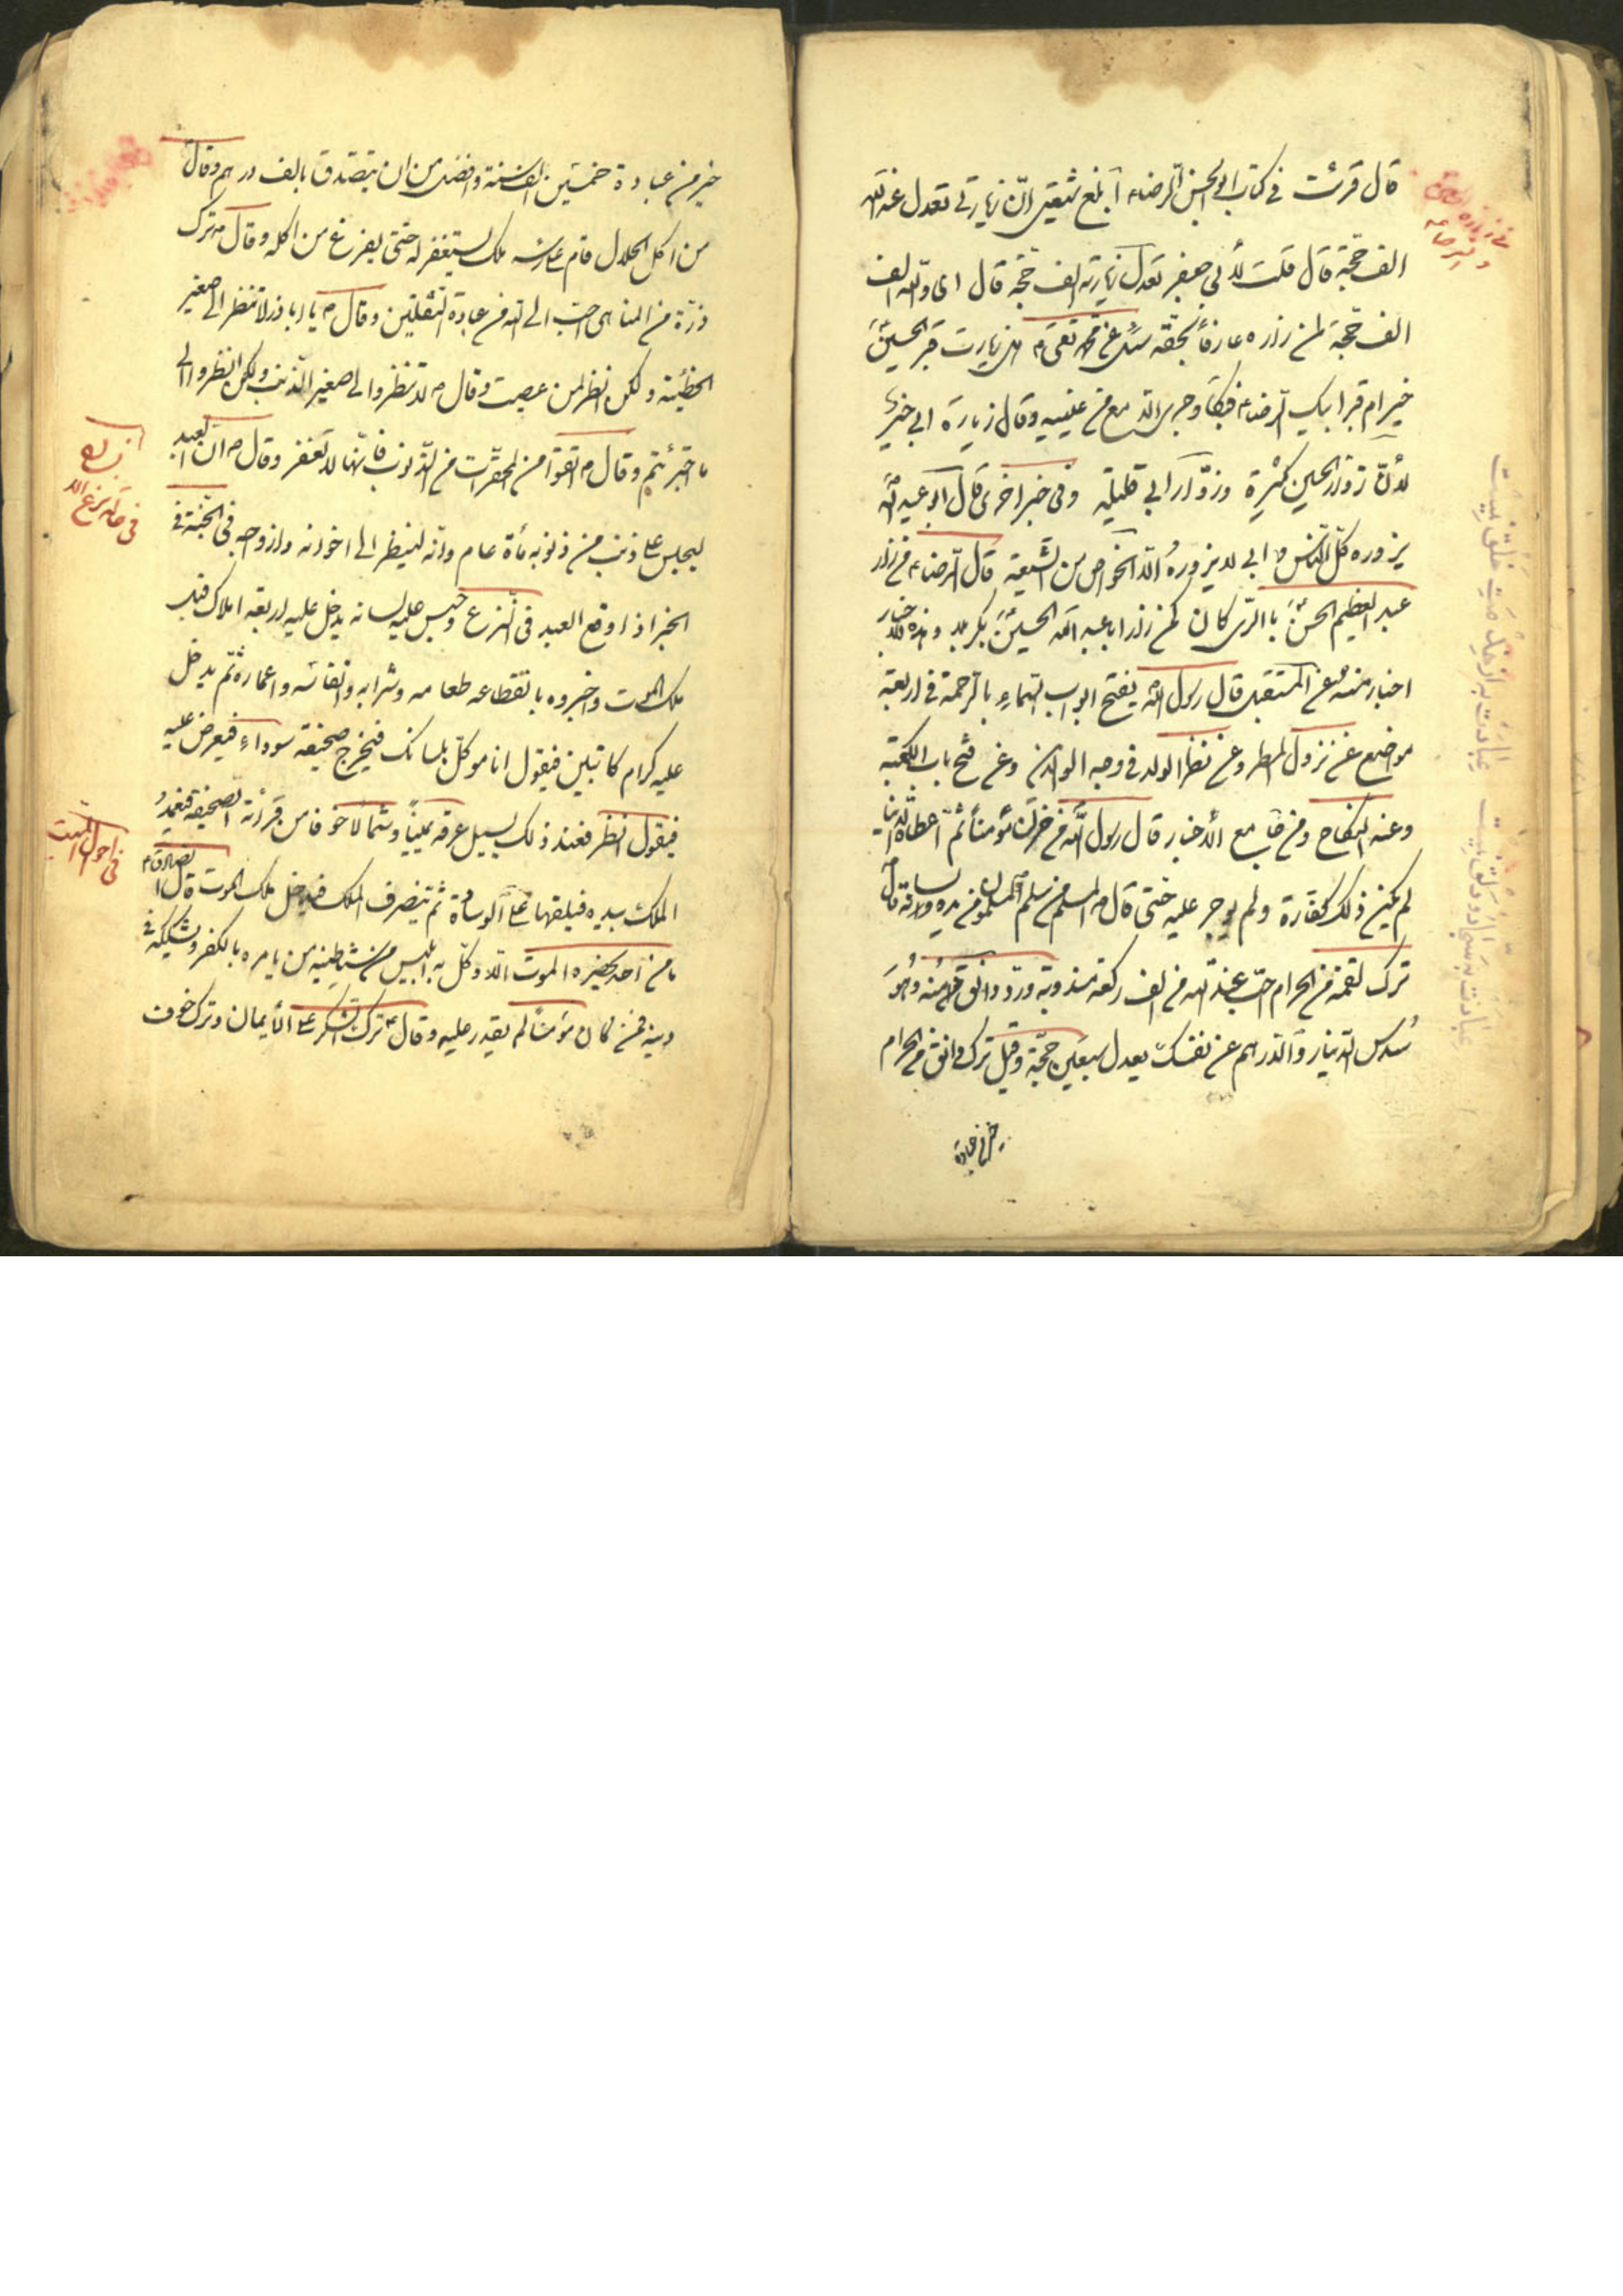 قال قرئت في كتاب ابو الحسن الرضا ع ابلغ شيعتي انّ زيارتي تعدل عند الله
الف حجّة قال قلت لأبي جعفر تعدل زيارته الف حجّة قال اي والله الف
الف حجّة لمن زاره عارفاً بحقّه سئل عن محمد تقي ع ان زيارت قبر الحسين
خير ام قبر ابيك الرضا ع فبكا وجرى الدمع من عينيه وقال زيارة ابي خير
لأنّ زوّار الحسين كثيرة وزوّار ابي قليلة وفي خبر اخرى قال ابو عبد الله
يزوره كلّ النّاس وابي لا يزوره الّا الخواص من الشّيعة قال الرضا ع من زار
عبد العظيم الحسنى بالرّى كان كمن زار ابا عبد الله الحسين بكربلا وهذه الاخبار
اخبار منه عن المستقبل قال رسول الله يفتح ابواب السّماء بالرّحمة في اربعة
مواضع عن نزول المطر وعن نظر الولد في وجه الوالدين وعن فتح باب الكعبة
وعند النكاح ومن جامع الأخبار قال رسول الله من حزن مؤمناً ثمّ اعطاه الدّنيا
لم يكن ذلك كفارة ولم يوجر عليه حتى قال م المسلم من سلم المسلمون من يده ولسانه قال
ترك لقمة من الحرام احبّ عند الله من الف ركعة مندوبة وردّ دانق حرام منه وهو
سُدس الدّينار والدّرهم عن نفسك يعدل سبعين حجّة وقيل ترك دانق من الحرام
خير من عبادة
خير من عبادة خمسين الف سنة وافضل من ان يتصدّق بالف درهم وقال
من اكل الحلال قام على راسه ملك يستغفر له حتّى يفرغ من اكله وقال م ترك
ذرّة من المناهى احبّ الى الله من عبادة الثّقلين وقال م يا ابا ذر لا تنظر الى صغير
الخطيئة ولكن انظر لمن عصيت وقال م لا تنظروا الى صغير الذّنب ولكن انظروا الى
ما اجترئتم وقال م اتّقوا من المحقّرات من الذّنوب فانّها لا تغفر وقال م ان العبد
ليجلس على ذنب من ذنوبه مأة عام وانه لينظر الى اخوانه وازواجه في الجنّة في
الخبر اذا وقع العبد في النّزع وحبس عليه لسانه يدخل عليه اربعة املاك قبل
ملك الموت واخبروه بانقطاعه طعامه وشرابه وانفاسه واعماره ثمّ يدخل
عليه كرام كاتبين فيقول انا موكّل بلسانك فيخرج صحيفة سوداء فيعرض عليه
فيقول انظر فعند ذلك يسيل عرقه يميناً وشمالا خوفا من قرائة الصّحيفة فيمدّ
الملك بيده فيلقها على الوسادة ثمّ ينصرف الملك فيدخل ملك الموت قال الصادق ع
ما من احد يحضره الموت الّا وكّل به ابليس من شياطينه من يامره بالكفر ويشكّكه في
دينه فمن كان مؤمناً لم يقدر عليه وقال ع ترك الشكر على الأيمان وترك خوف
في حالة نزع
في احوال الميت